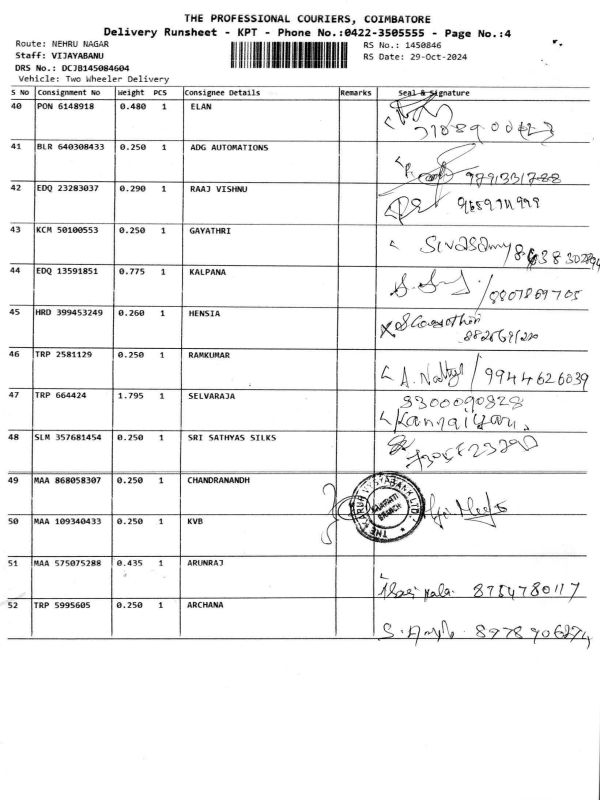 THE PROFESSIONAL COURIERS, COIMBATORE
Delivery Runsheet - KPT - Phone No.:0422-3505555 - Page No.:4
Route: NEHRU NAGAR RS No.: 1450846
Staff: VIJAYABANU RS Date: 29-Oct-2024
DRS No.: DCJB145084604
Vehicle: Two Wheeler Delivery
S No Consignment No Weight PCS Consignee Details Remarks Seal & Signature
40 PON 6148918 0.480 1 ELAN
41 BLR 640308433 0.250 1 ADG AUTOMATIONS
9791331788
42 EDQ 23283037 0.290 1 RAAJ VISHNU
43 KCM 50100553 0.250 1 GAYATHRI
Sivasamy
44 EDQ 13591851 0.775 1 KALPANA
8807869705
45 HRD 399453249 0.260 1 HENSIA
46 TRP 2581129 0.250 1 RAMKUMAR
9944626039
47 TRP 664424 1.795 1 SELVARAJA
8300090828
48 SLM 357681454 0.250 1 SRI SATHYAS SILKS
49 MAA 868058307 0.250 1 CHANDRANANDH
THE KARUR VYSYA BANK LTD.
BRANCH
50 MAA 109340433 0.250 1 KVB
51 MAA 575075288 0.435 1 ARUNRAJ
8754780117
52 TRP 5995605 0.250 1 ARCHANA
8978906274